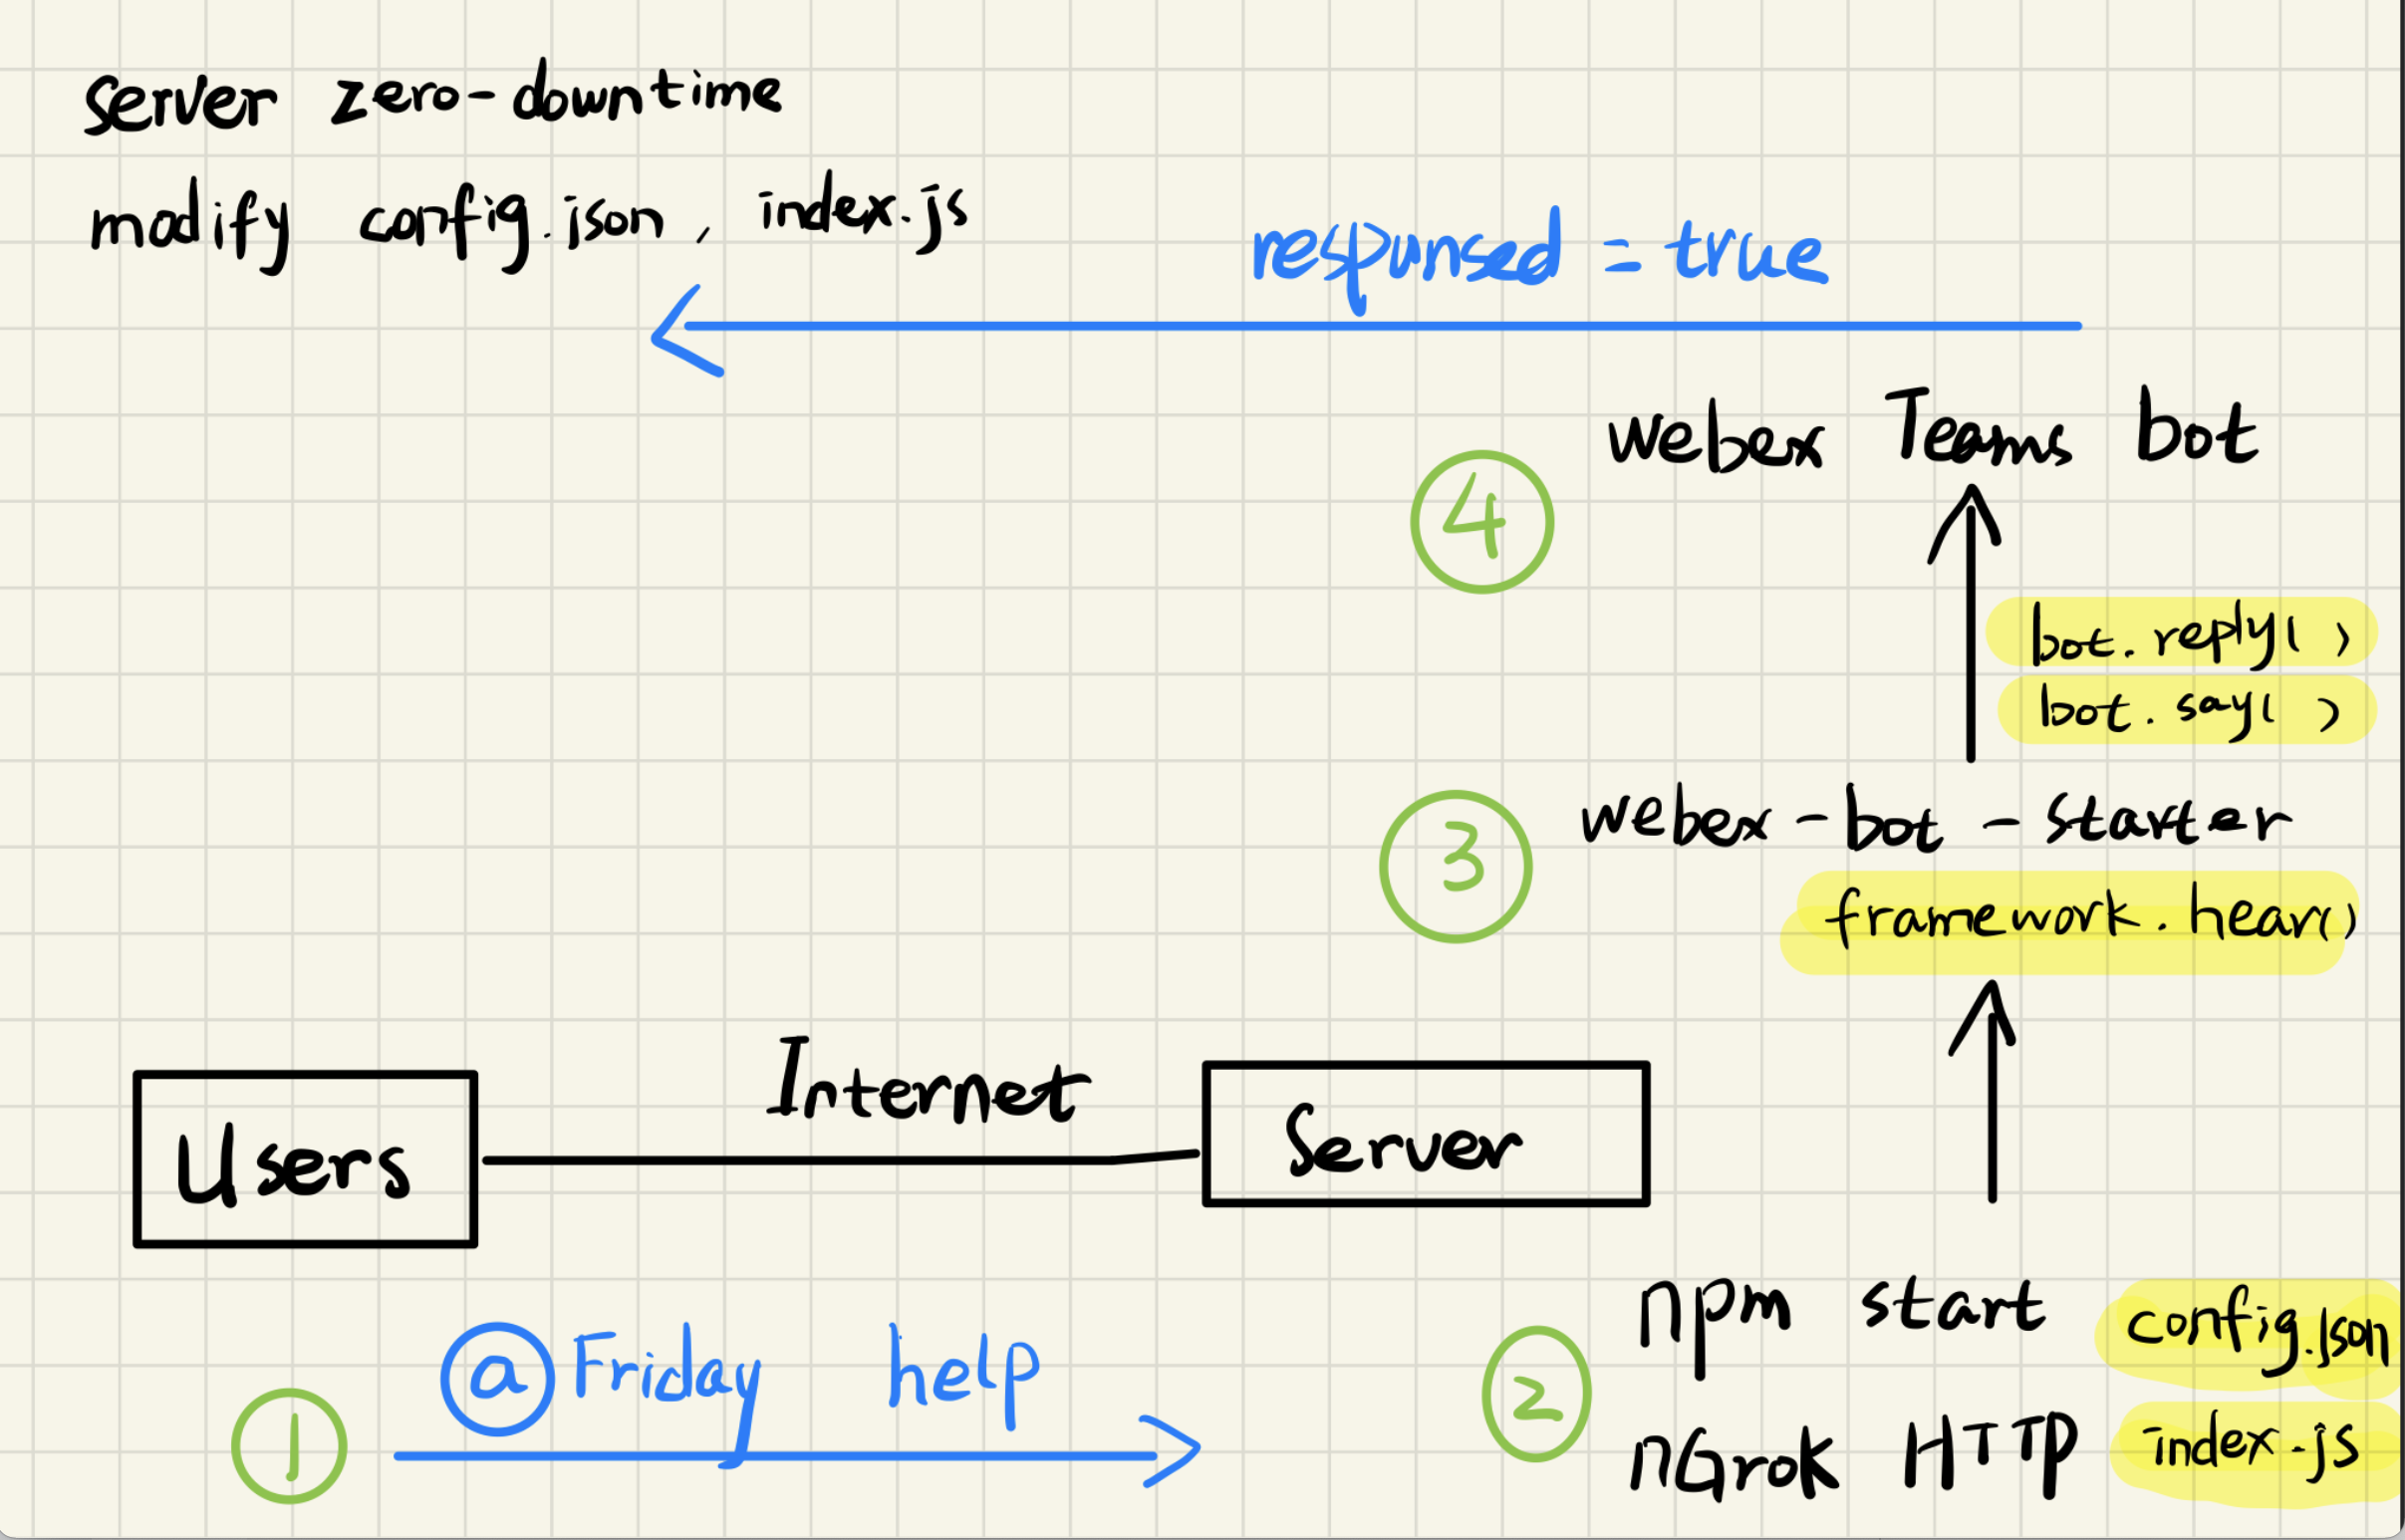 server zero-downtime
modify config.json, index.js
responsed = true
webex Teams bot
④
bot.reply( )
bot.say( )
③
webex-bot-starter
framework.hear()
Internet
Users
Server
① @Friday help
② npm start config.json
nGrok HTTP index.js